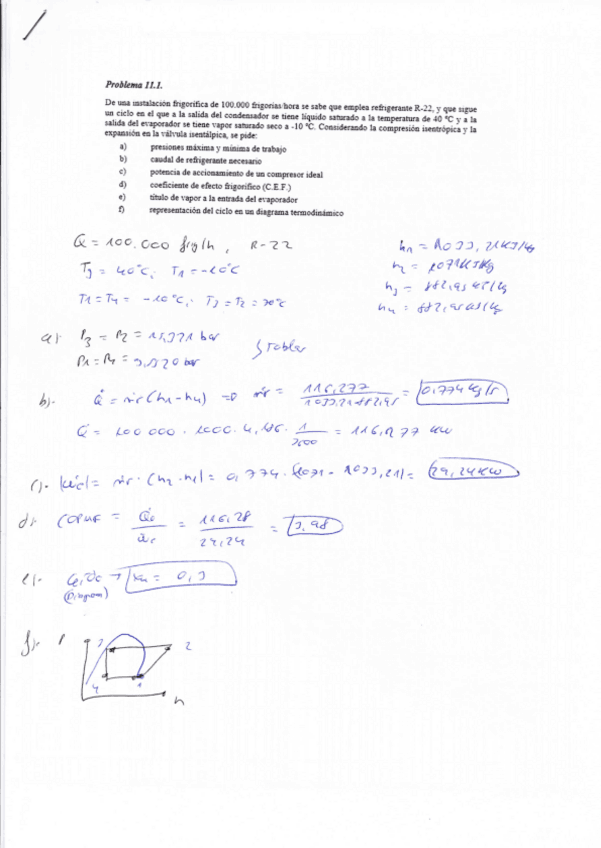 Problema 11.1.
De una instalación frigorífica de 100.000 frigorías/hora se sabe que emplea refrigerante R-22, y que sigue
un ciclo en el que a la salida del condensador se tiene líquido saturado a la temperatura de 40 ºC y a la
salida del evaporador se tiene vapor saturado seco a -10 ºC. Considerando la compresión isentrópica y la
expansión en la válvula isentálpica, se pide:
a) presiones máxima y mínima de trabajo
b) caudal de refrigerante necesario
c) potencia de accionamiento de un compresor ideal
d) coeficiente de efecto frigorífico (C.E.F.)
e) título de vapor a la entrada del evaporador
f) representación del ciclo en un diagrama termodinámico
Q = 100.000 frig/h, R-22
h1 = 1033,21 KJ/kg
T3 = 40°C; T1 = -10°C
h2 = 1071 KJ/Kg
h3 = 882,95 KJ/kg
T1 = T4 = -10°C;
h4 = 882,95 KJ/kg
a). P3 = P2 = bar
P1 = P4 = bar
Tablas
b). Q = ṁ (h1-h4) => ṁ = 116,277 / 1033,21-882,95 = 0,774 kg/s
Q = 100 000 · 1000 · 4,186 · 1/3600 = 116,277 KW
c). = ṁ · (h2-h1) = 0,774 · (1071 - 1033,21) = 29,24 KW
d). = 116,28 / 29,24 = 3,98
e). → x4 = 0,3
(Diagram)
f). P
3 2
4 1
h